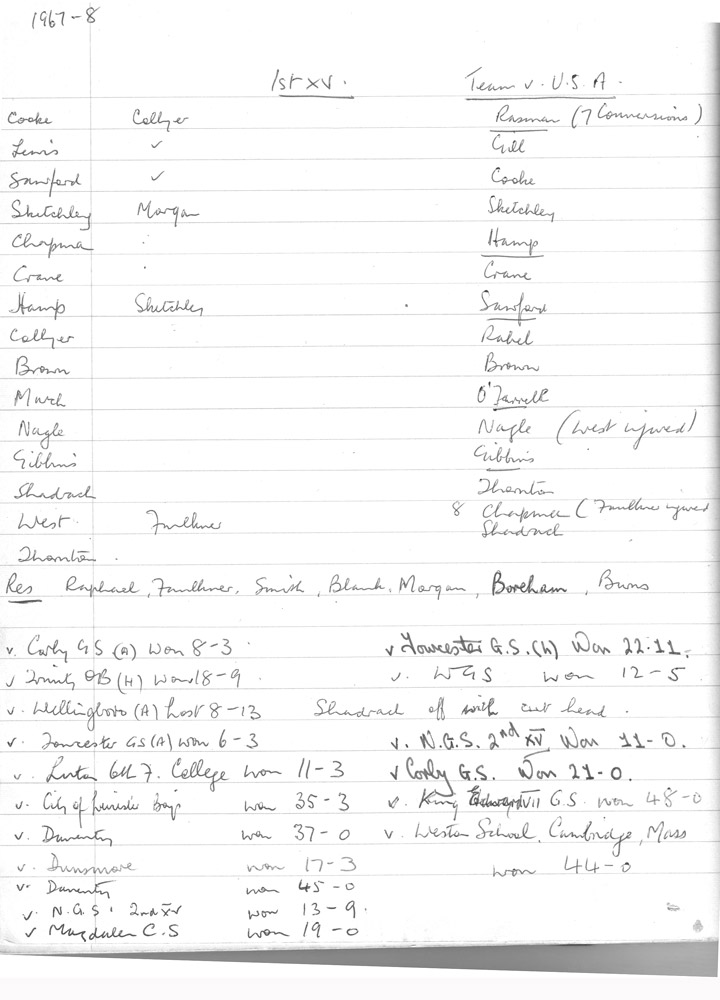 1967-8
1st XV. Team v. U.S.A.
Cooke Collyer Rasman (7 Conversions)
Lewis ✓ Gill
Sawford ✓ Cooke
Sketchley Morgan Sketchley
Chapman Hamp
Crane Crane
Hamp Sketchley Sawford
Collyer
Brown Brown
March O'Farrell
Nagle Nagle (West injured)
Gibbins Gibbins
Shadrach Thornton
West Faulkner 8 Chapman (Faulkner injured
Shadrach
Thornton
Res Raphael, Faulkner, Smith, Blank, Morgan, Boreham, Burns
v. Corby GS (A) Won 8-3 v Towcester G.S. (h) Won 22-11.
v Trinity OB (H) Won 18-9. v. WGS won 12-5
v. Wellingboro (A) Lost 8-13 Shadrach off with cut head.
v. Towcester GS (A) won 6-3 v. N.G.S. 2nd XV Won 11-0.
v. Luton 6th F. College won 11-3 v Corby G.S. Won 21-0.
v. City of Leicester Boys won 35-3 v. King Edward VII G.S. won 48-0
v. Daventry won 37-0 v. Weston School, Cambridge, Mass
v. Dunsmore won 17-3 won 44-0
v. Daventry won 45-0
v. N.G.S. 2nd XV won 13-9.
v Magdalen C.S won 19-0